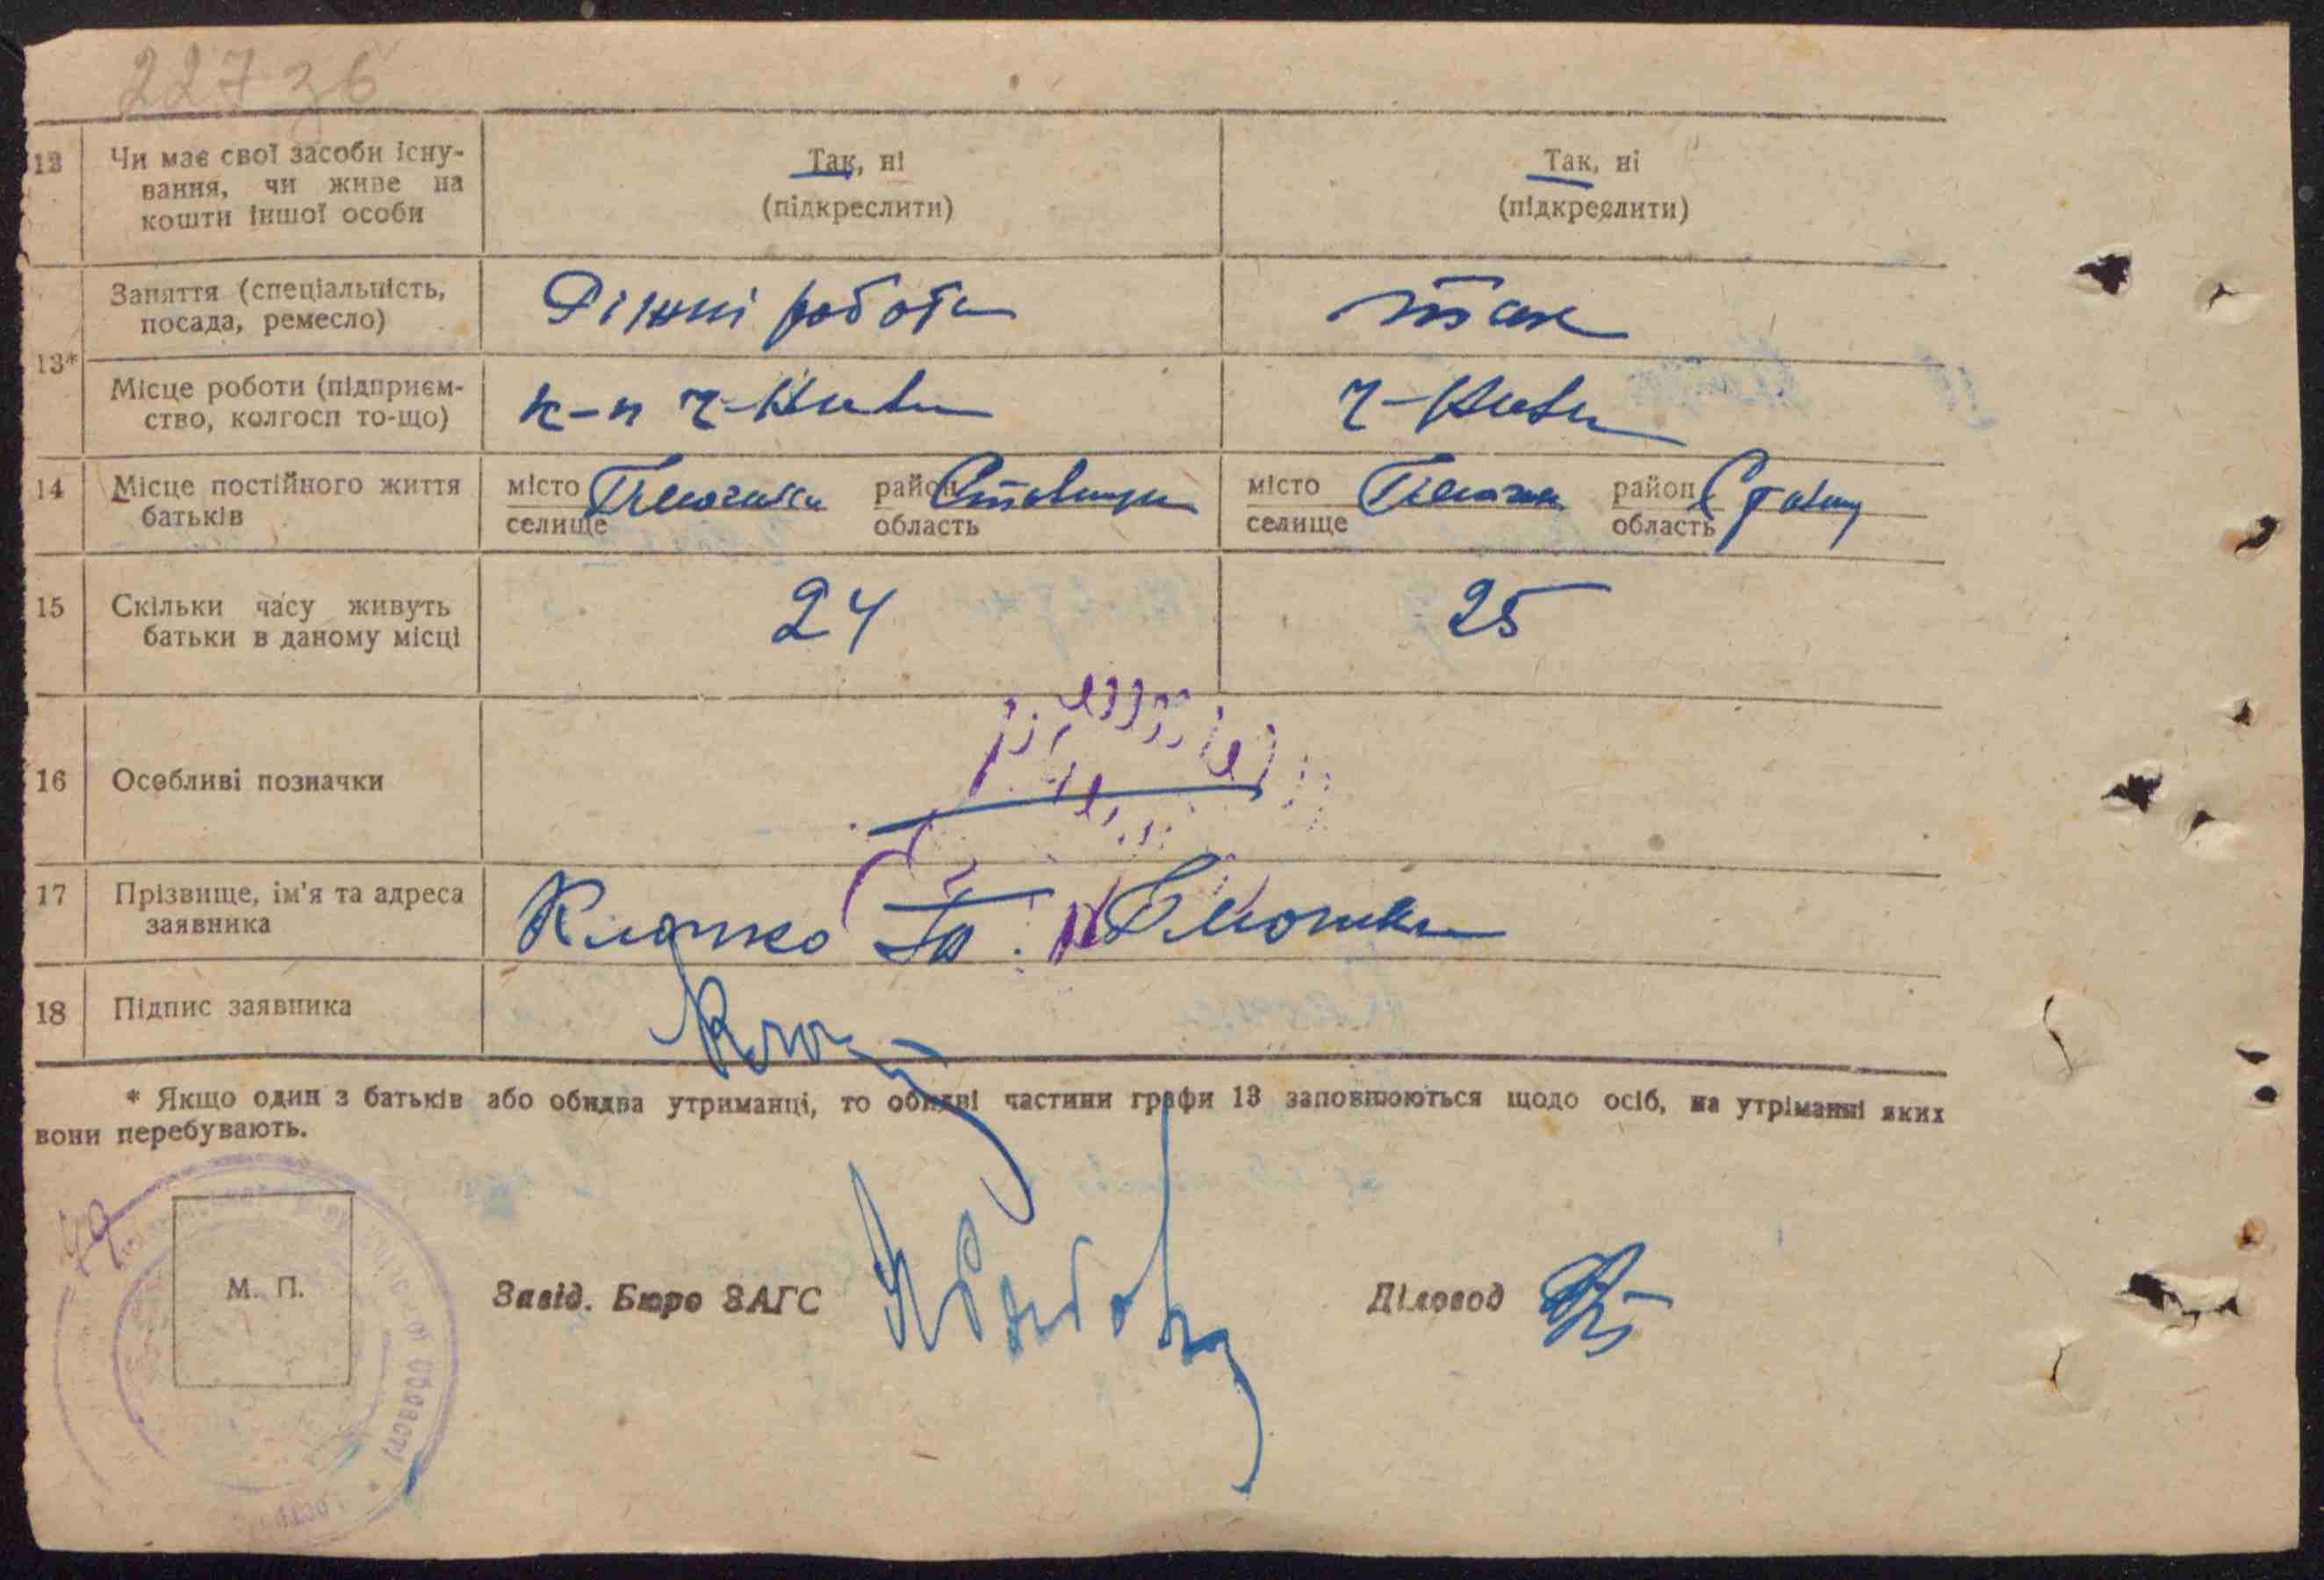 22736
12 Чи має свої засоби існу-
вання, чи живе на
кошти іншої особи
Так, ні
(підкреслити)
Так, ні
(підкреслити)
13*
Заняття (спеціальність,
посада, ремесло)
Різні роботи
так
Місце роботи (підприєм-
ство, колгосп то-що)
к-п Ч-Нива
Ч-Нива
14 Місце постійного життя
батьків
місто
селище
район Ставищи
область
місто
селище
район Ставищ
область
15 Скільки часу живуть
батьки в даному місці
24
25
16 Особливі позначки
17 Прізвище, ім'я та адреса
заявника
Клочко
18 Підпис заявника
* Якщо один з батьків або обидва утриманці, то обидві частини графи 13 заповнюються щодо осіб, на утріманні яких
вони перебувають.
М. П.
Завід. Бюро ЗАГС
Діловод
Області